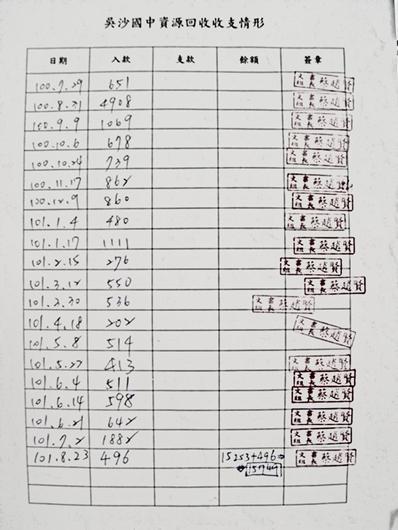 吳沙國中資源回收收支情形
日期 入款 支款 餘額 簽章
100.7.29 651 文書組長 蔡趙賢
100.8.31 4908 文書組長 蔡趙賢
100.9.9 1069 文書組長 蔡趙賢
100.10.6 678 文書組長 蔡趙賢
100.10.24 739 文書組長 蔡趙賢
100.11.17 862 文書組長 蔡趙賢
100.12.9 860 文書組長 蔡趙賢
101.1.4 480 文書組長 蔡趙賢
101.1.17 1111 文書組長 蔡趙賢
101.2.15 276 文書組長 蔡趙賢
101.3.12 550 文書組長 蔡趙賢
101.3.30 536 文書組長 蔡趙賢
101.4.18 202 文書組長 蔡趙賢
101.5.8 514
101.5.27 413 文書組長 蔡趙賢
101.6.4 511 文書組長 蔡趙賢
101.6.14 598 文書組長 蔡趙賢
101.6.21 642 文書組長 蔡趙賢
101.7.2 1882 文書組長 蔡趙賢
101.8.23 496 15253+496 文書組長 蔡趙賢
15749